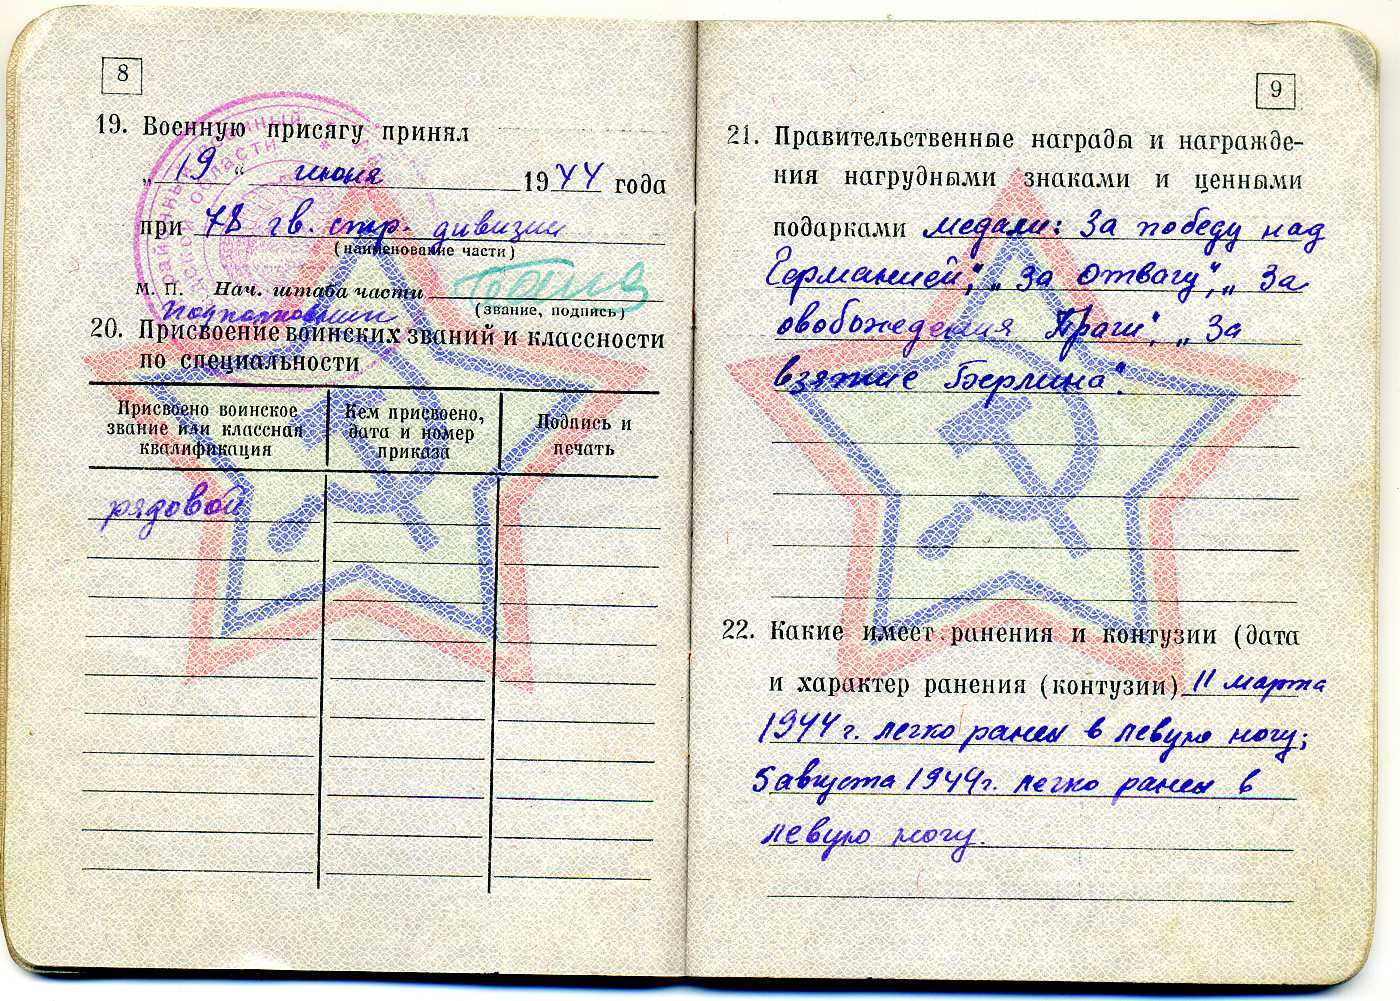 8
19. Военную присягу принял
„19“ июня 1944 года
при 78 гв. стр. дивизии
(наименование части)
М. П. Нач. штаба части
Подполковник (звание, подпись)
20. Присвоение воинских званий и классности
по специальности
Присвоено воинское
звание или классная
квалификация
Кем присвоено,
дата и номер
приказа
Подпись и
печать
рядовой
9
21. Правительственные награды и награжде-
ния нагрудными знаками и ценными
подарками медали: За победу над
Германией", „За отвагу", „За
овобождения Праги", „За
взятие Берлина".
22. Какие имеет ранения и контузии (дата
и характер ранения (контузии) 11 марта
1944 г. легко ранен в левую ногу;
5 августа 1944г. легко ранен в
левую ногу.